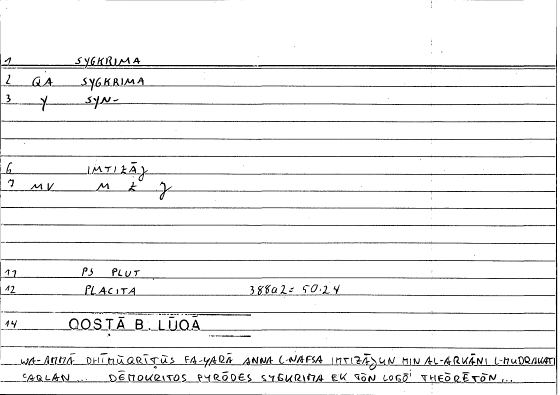 1 SYGKRIMA
2 QA SYGKRIMA
3 Y SYN-
6 IMTIZĀǧ
7 MV M Z ǧ
11 PS PLUT
12 PLACITA 388a2= 50.24
14 QOSṬĀ B. LŪQĀ
WA-AMMĀ DHĪMŪQRĪṬŪS FA-YARĀ ANNA L-NAFSA IMTIZĀǧUN MIN AL-ARKĀNI L-MUDRAKATI
ʿAQLAN ... DĒMOKRITOS PYRŌDES SYGKRIMA EK TŌN LOGŌ THEŌRĒTŌN ...